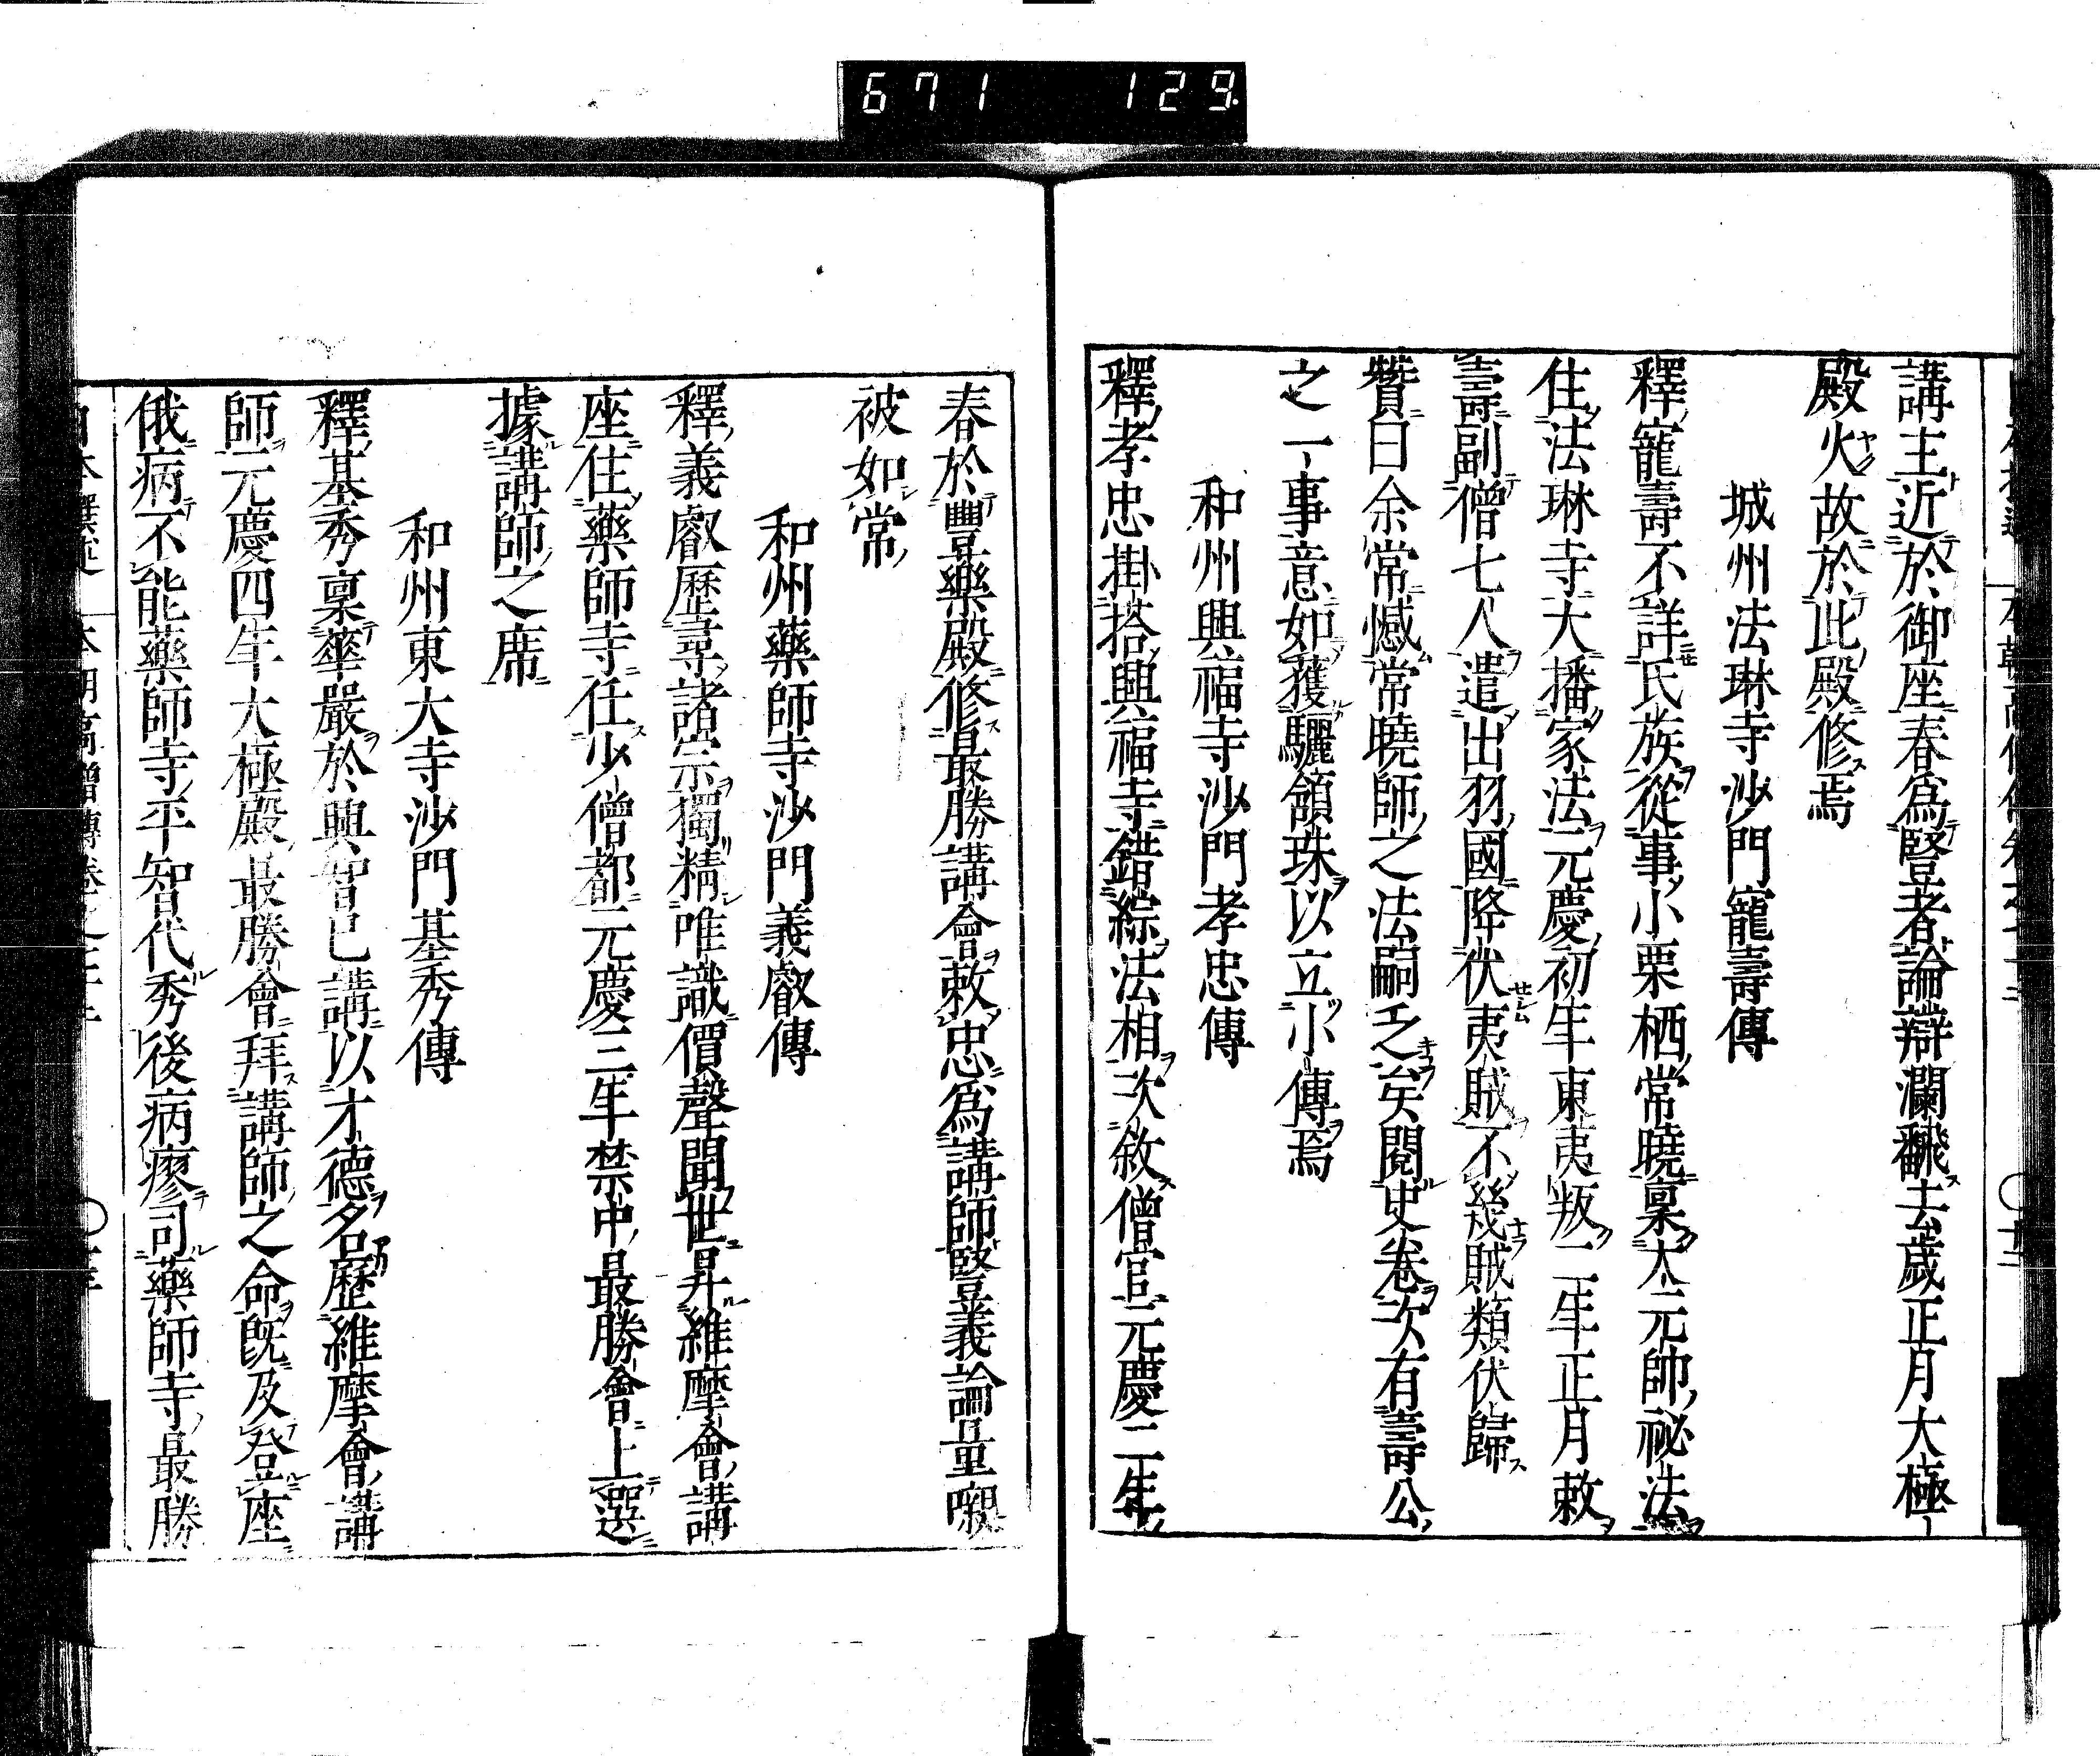 671 129
講主近於御座春爲豎者論辯瀾飜去歲正月大極
殿火故於此殿修焉
城州法琳寺沙門寵壽傳
釋寵壽不詳氏族從事小栗栖常曉稟大元帥祕法
住法琳寺大播家法元慶初年東夷叛二年正月敕
壽副僧七人遣出羽國降伏夷賊不幾賊類伏歸
贊曰余常憾常曉師之法嗣乏矣閱史卷次有壽公
之一事意如獲驪頷珠以立小傳焉
和州興福寺沙門孝忠傳
釋孝忠掛搭興福寺錯綜法相次敘僧官元慶二年
春於豐樂殿修最勝講會敕忠爲講師豎義論量嚫
被如常
和州藥師寺沙門義叡傳
釋義叡歷尋諸宗獨精唯識價聲聞世昇維摩會講
座住藥師寺任少僧都元慶三年禁中最勝會上選
據講師之席
和州東大寺沙門基秀傳
釋基秀稟華嚴於興智已講以才德名歷維摩會講
師元慶四年大極殿最勝會拜講師之命旣及登座
俄病不能藥師寺平智代秀後病瘳司藥師寺最勝